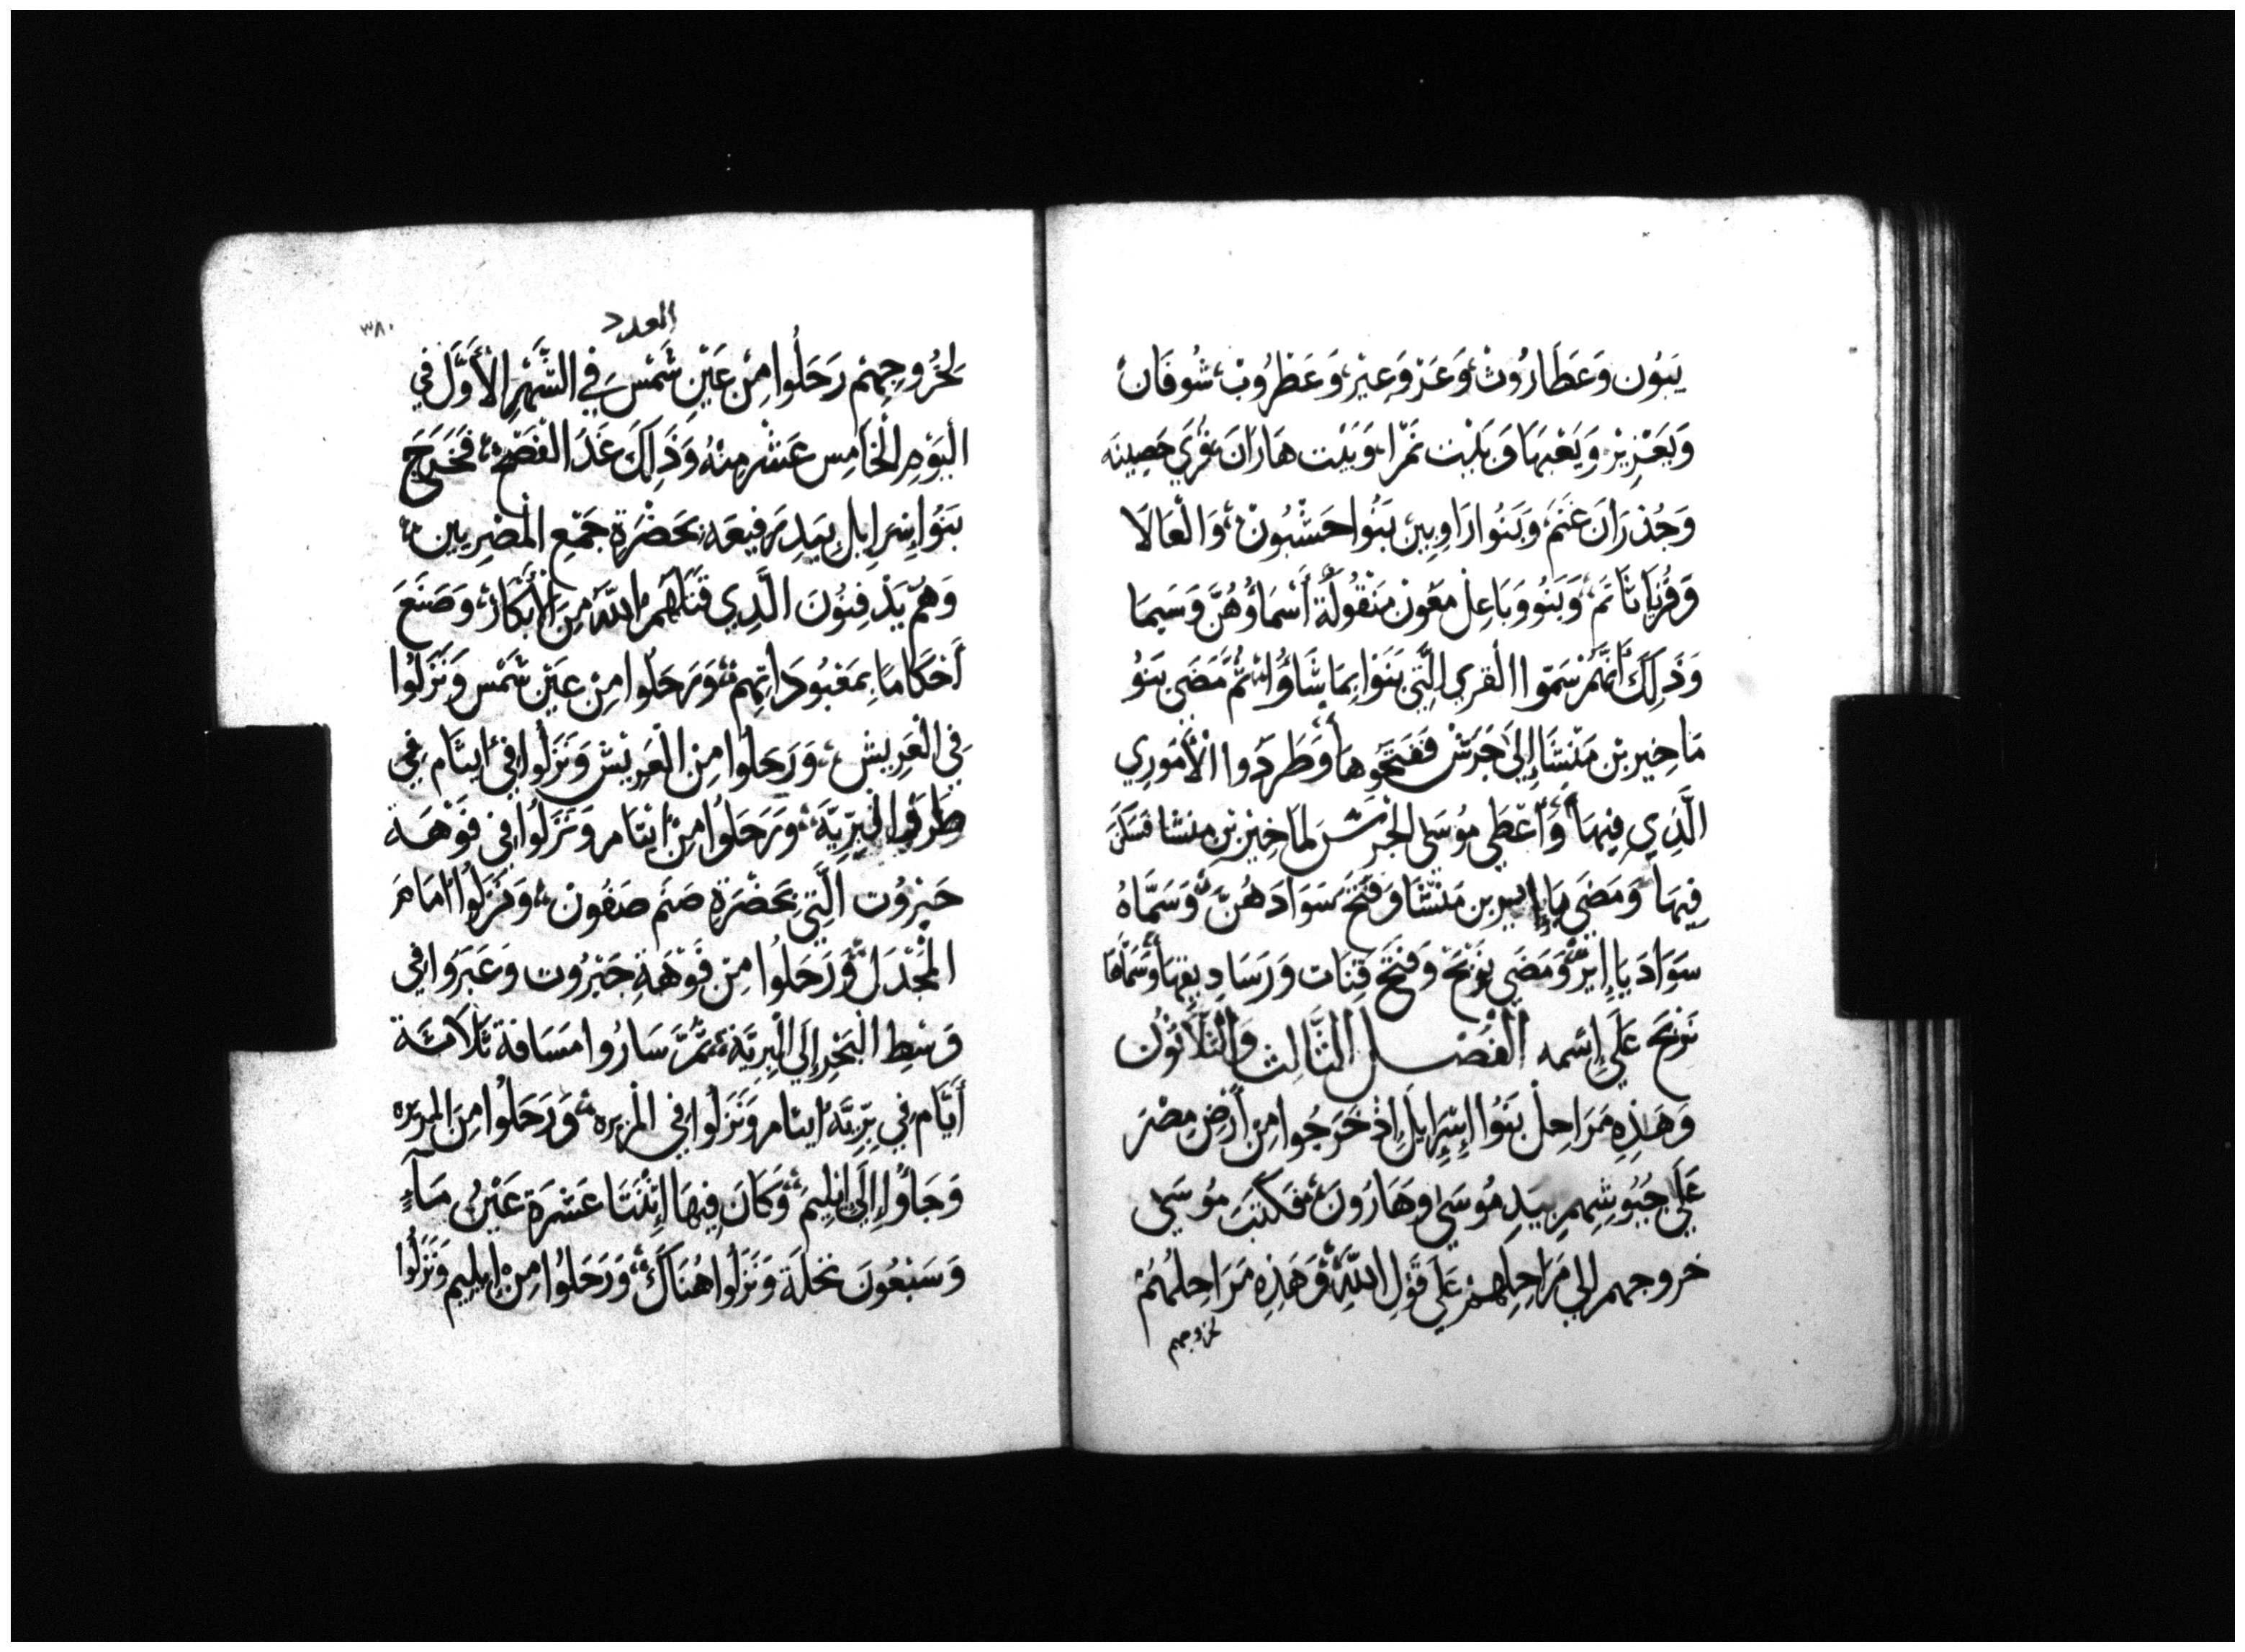 يَبوُن وَعَطَارُوْث وَعَزْ وَعِيْر، وَعَظْرُوْبْ، شُوفَانْ
وَيَعْزِيزْ وَيَعْبهَا وَبَيْت نَمْرَا، وَبَيْت هَارَانَ قُرَي حَصِينَه
وَجُدْرَانَ غَنَمَ، وَبَنُوا رَاوِبِيْن بَنُوا حَشْبُونْ، وَالْعَالَا
وَقُرْيَاتَاتَمَ، وَبَنُو وَبَاعِلْ مَعُون مَنْقُولَةُ أَسْمَاؤُهُنَّ وَسَيمَا
وَذَلِكَ أنَّهُمْ سَمّوا القري الَّتِي بَنَوْا بِمَا شَاؤُا ثُمَّ مَضَي بَنُو
مَاخِير بْن مَنْشَا إِلَي جَرَشْ فَفَتَحُوهَا وَطَرَدُوا الْأَمُورِي
الَّذِي فِيهَا وَأَعْطَي مُوسَي الجَرَشَ لمَاخِيْر بْن منشا فَسَكَنَ
فِيهَا وَمَضَي يَاإِيير بن مَنْشَا وَفَتَحَ سَوَادَهُنَّ وَسَمَّاهُ
سَوَادَ يَاإِيرْ وَمَضَي نَوْبَحَ وَفَتَحَ قِنَات وَرَسَاتِيقهَا وَسَمَّاهَا
نَوْبَحَ عَلَي إِسْمه الْفَصْل الثَّالِث وَالثَّلَاثُون
وَهَذِهِ مَرَاحِلْ بَنُوا إِسْرَايلَ إِذْ خَرَجُوا مِنْ أَرْضِ مِصْرَ
عَلَي جُيُوشِهِمِ بِيَدِ مُوسَي وَهَارُونَ، فَكَتَبَ مُوسَي
خروجهم الي مَرَاحِلِهِمْ عَلَي قَوْلِ اللَّهِ وَهَذِهِ مَرَاحِلُهُمْ
لخروجهم
العدد
٣٨٠
لِخُرُوجِهِمْ رَحَلُوا مِنْ عَيْنِ شَمْسَ فِي الشَّهْرِ الْأَوَّلِ فِي
الْيَوْمِ الْخَامِس عَشَر مِنْهُ وَذَلِكَ غَدَ الفَصْحْ، فَخَرَجَ
بَنُوا إِسْرَايِل بِيَدٍ رَفِيعَه بِحَضْرَةِ جَمْعِ الْمَصْرِيين
وَهُمْ يَدْفِنُونَ الَّذِي قَتَلَهُمُ اللَّهُ مِنَ الْأَبْكَارْ، وَصَنَعَ
أَحْكَامًا بِمَعْبُودَاتِهِمْ، وَرَحَلُوا مِنْ عَيْن شَمْس وَنَزَلُوا
فِي الْعَرِيش، وَرَحَلُوا مِنَ الْعَرِيْش وَنَزَلُوا فِي ايتَام فِي
طَرَفِ الْبَرِّيَّةِ، وَرَحَلُوا مِنْ ايتَام وَنَزَلُوا فِي فَوْهَة
حَيرُوت الَّتِي بِحَضْرَةِ صَنَم صَفُون، وَنَزَلُوا امَامَ
الْمَجْدَلْ وَرَحَلُوا مِنْ فَوْهَةِ حَيْرُوت وَعَبَرَوا فِي
وَسْطِ الْبَحْرِ إِلَي الْبَرِيَّة، ثُمَّ سَارُوا مَسَافَة ثَلَاثَة
أَيَّام فِي بَرِّيَّة ايتَام وَنَزَلُوا فِي الْمَرِيره، وَرَحَلُوا مِنَ الْمَرِيره
وَجَاؤُا إِلَي ايْلِيمَ، وَكَانَ فِيهَا إِثْنَتَا عَشْرَة عَيْنُ مَاءٍ
وَسَبْعُونَ نَخْلَة وَنَزَلُوا هُنَاكَ، وَرَحَلُوا مِنْ إِيلِيم وَنَزَلُوا